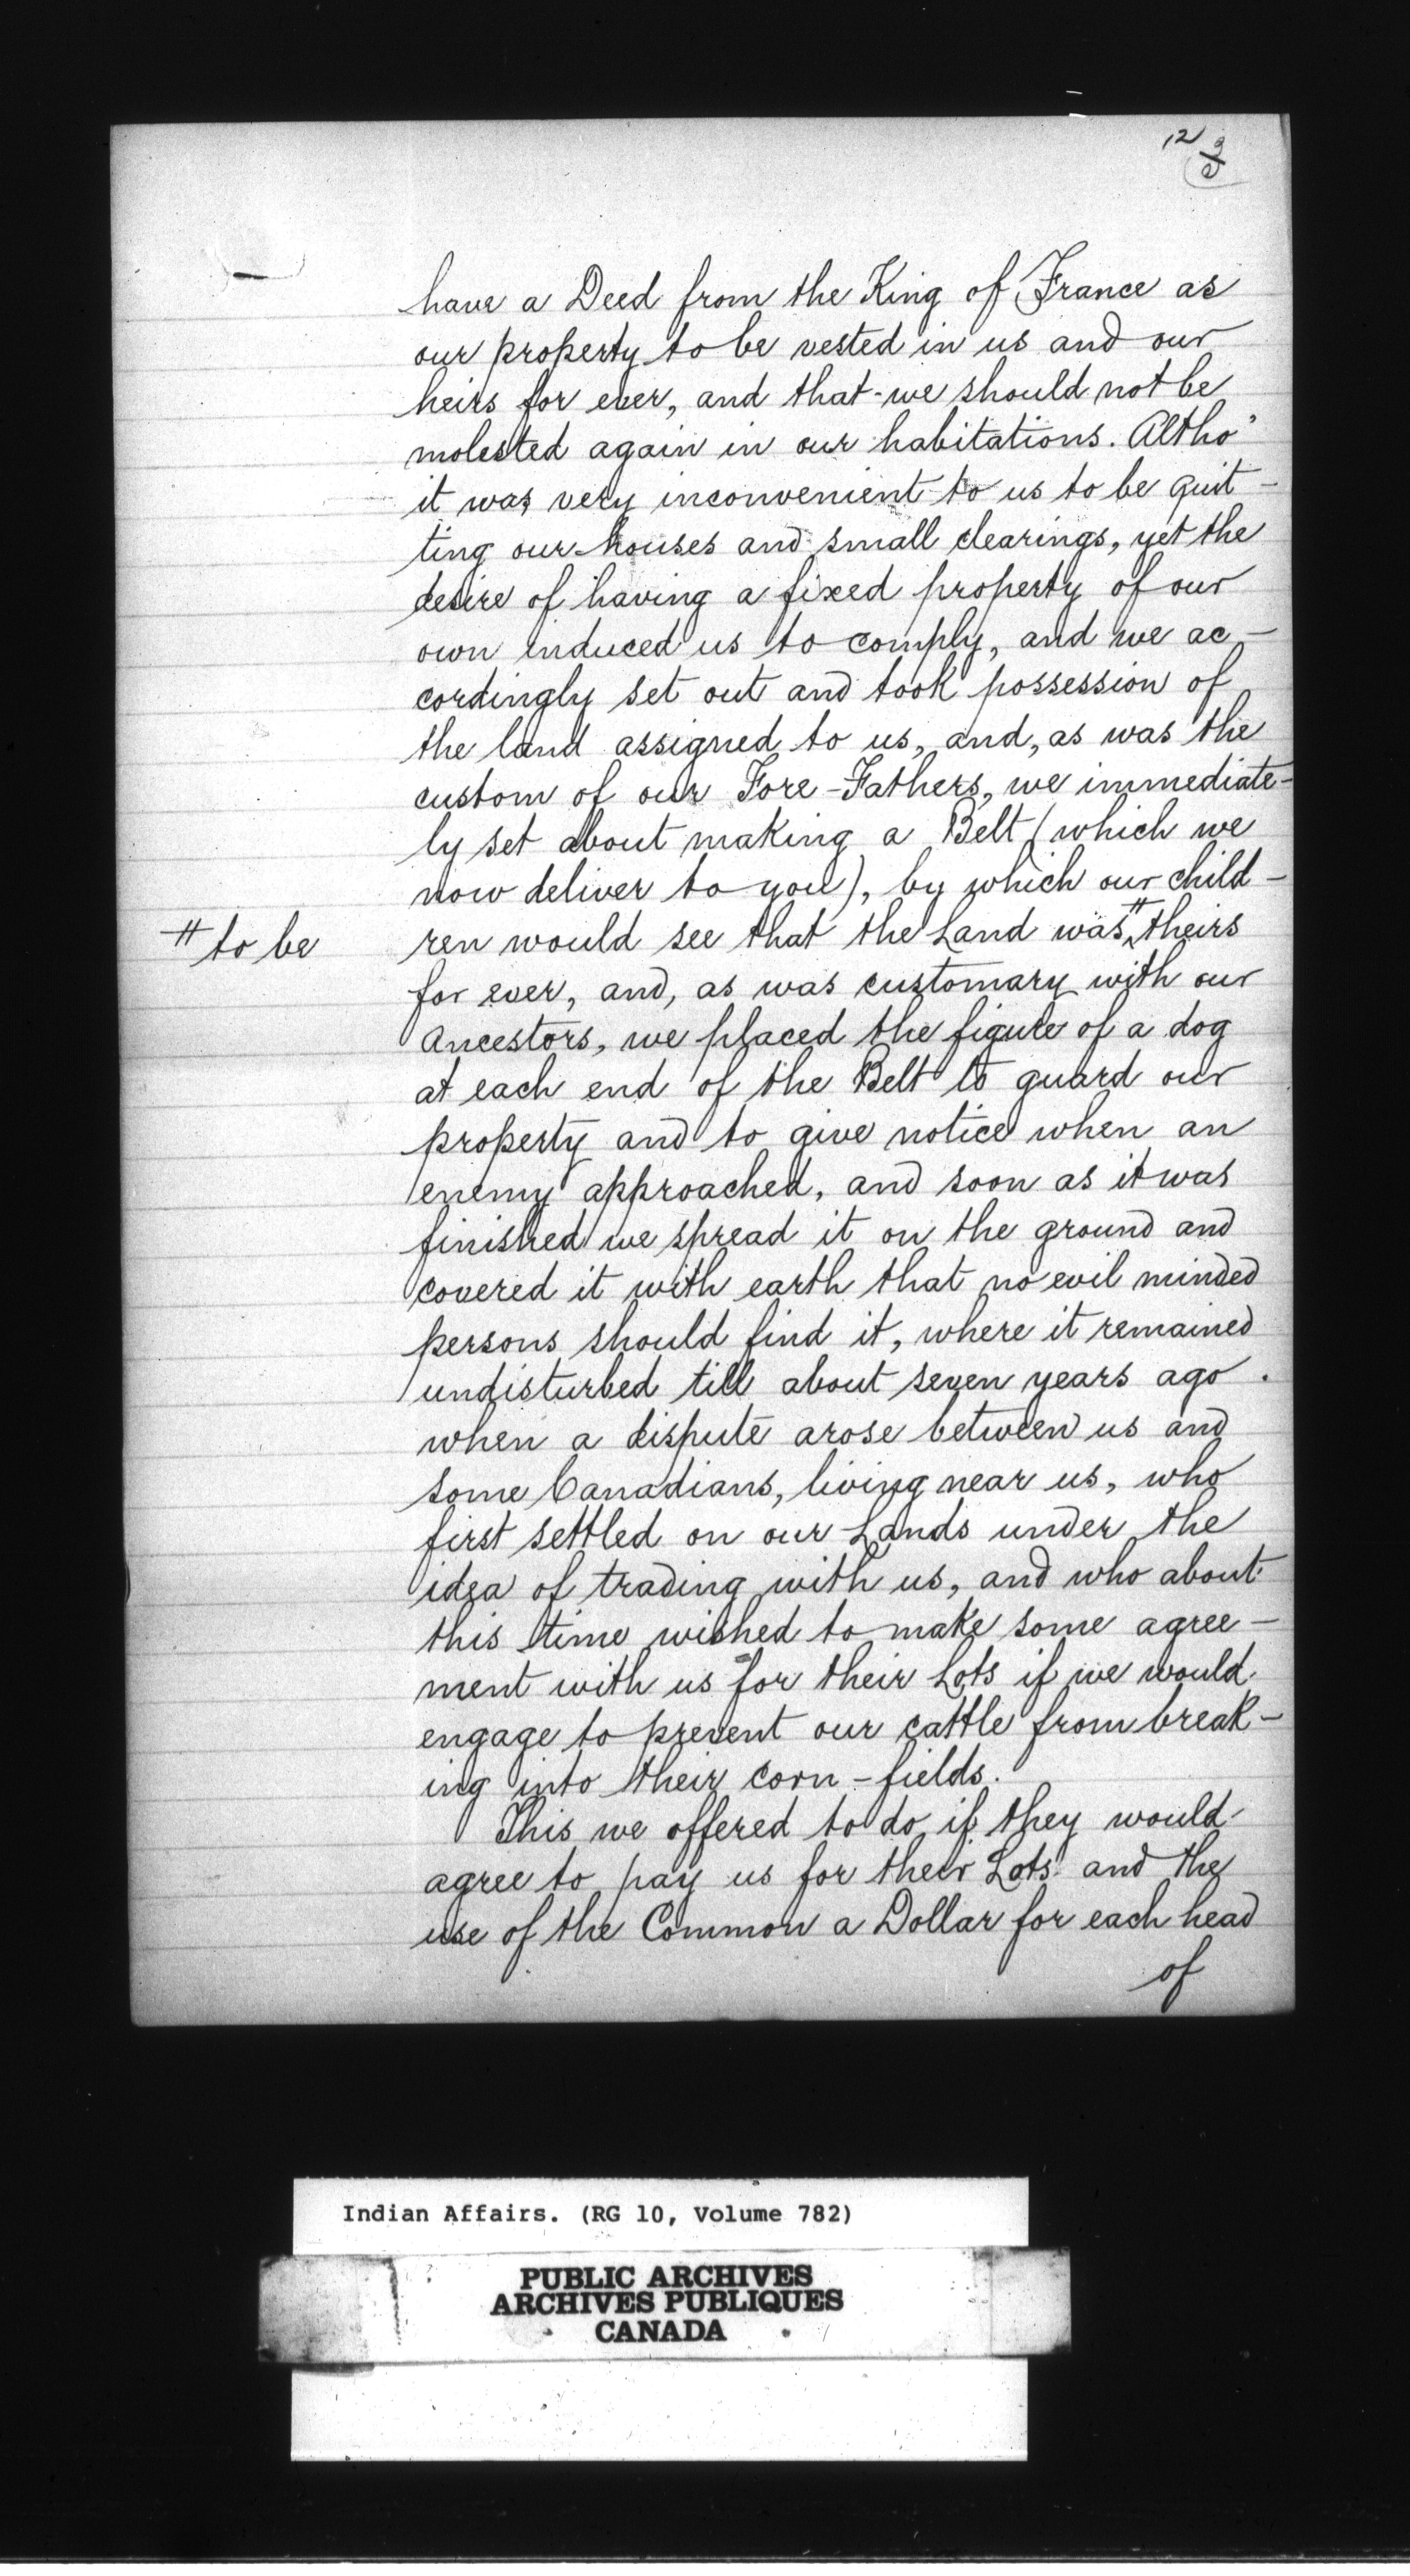 12
have a Deed from the King of France as
our property to be vested in us and our
heirs for ever, and that we should not be
molested again in our habitations. Altho'
it was very inconvenient to us to be quit-
ting our houses and small clearings, yet the
desire of having a fixed property of our
own induced us to comply, and we ac-
cordingly set out and took possession of
the land assigned to us, and, as was the
custom of our Fore-Fathers, we immediate-
ly set about making a Belt (which we
now deliver to you), by which our child-
# to be
ren would see that the Land was # theirs
for ever, and, as was customary with our
ancestors, we placed the figure of a dog
at each end of the Belt to guard our
property and to give notice when an
enemy approached, and soon as it was
finished we spread it on the ground and
covered it with earth that no evil minded
persons should find it, where it remained
undisturbed till about seven years ago.
when a dispute arose between us and
some Canadians, living near us, who
first settled on our Lands under the
idea of trading with us, and who about
this time wished to make some agree-
ment with us for their Lots if we would
engage to prevent our cattle from break-
ing into their corn-fields.
This we offered to do if they would
agree to pay us for their Lots and the
use of the Common a Dollar for each head
of
Indian Affairs. (RG 10, Volume 782)
PUBLIC ARCHIVES
ARCHIVES PUBLIQUES
CANADA